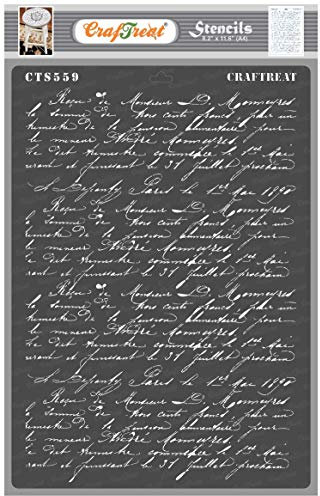 CrafTreat
Stencils
8.2" x 11.6" (A4)
CTS559 CRAFTREAT
Reçu de Monsieur D. Monmeyres
la somme de trois cents francs pour un
trimestre de la pension alimentaire pour
le mineur André Monmeyres
le dit trimestre commençe le 1er Mai
rant et finissant le 31 juillet prochain
Paris le 1er Mai 1890
Reçu de Monsieur D. Monmeyres
la somme de trois cents francs pour un
trimestre de la pension alimentaire pour
le mineur André Monmeyres
le dit trimestre commençe le 1er Mai
rant et finissant le 31 juillet prochain
Reçu de Monsieur D. Monmeyres
la somme de trois cents francs pour un
trimestre de la pension alimentaire pour
le mineur André Monmeyres
le dit trimestre commençe le 1er Mai
rant et finissant le 31 juillet prochain
Paris le 1er Mai 1890
Reçu de Monsieur D. Monmeyres
la somme de trois cents francs pour un
trimestre de la pension alimentaire pour
le mineur André Monmeyres
le dit trimestre commençe le 1er Mai
rant et finissant le 31 juillet prochain